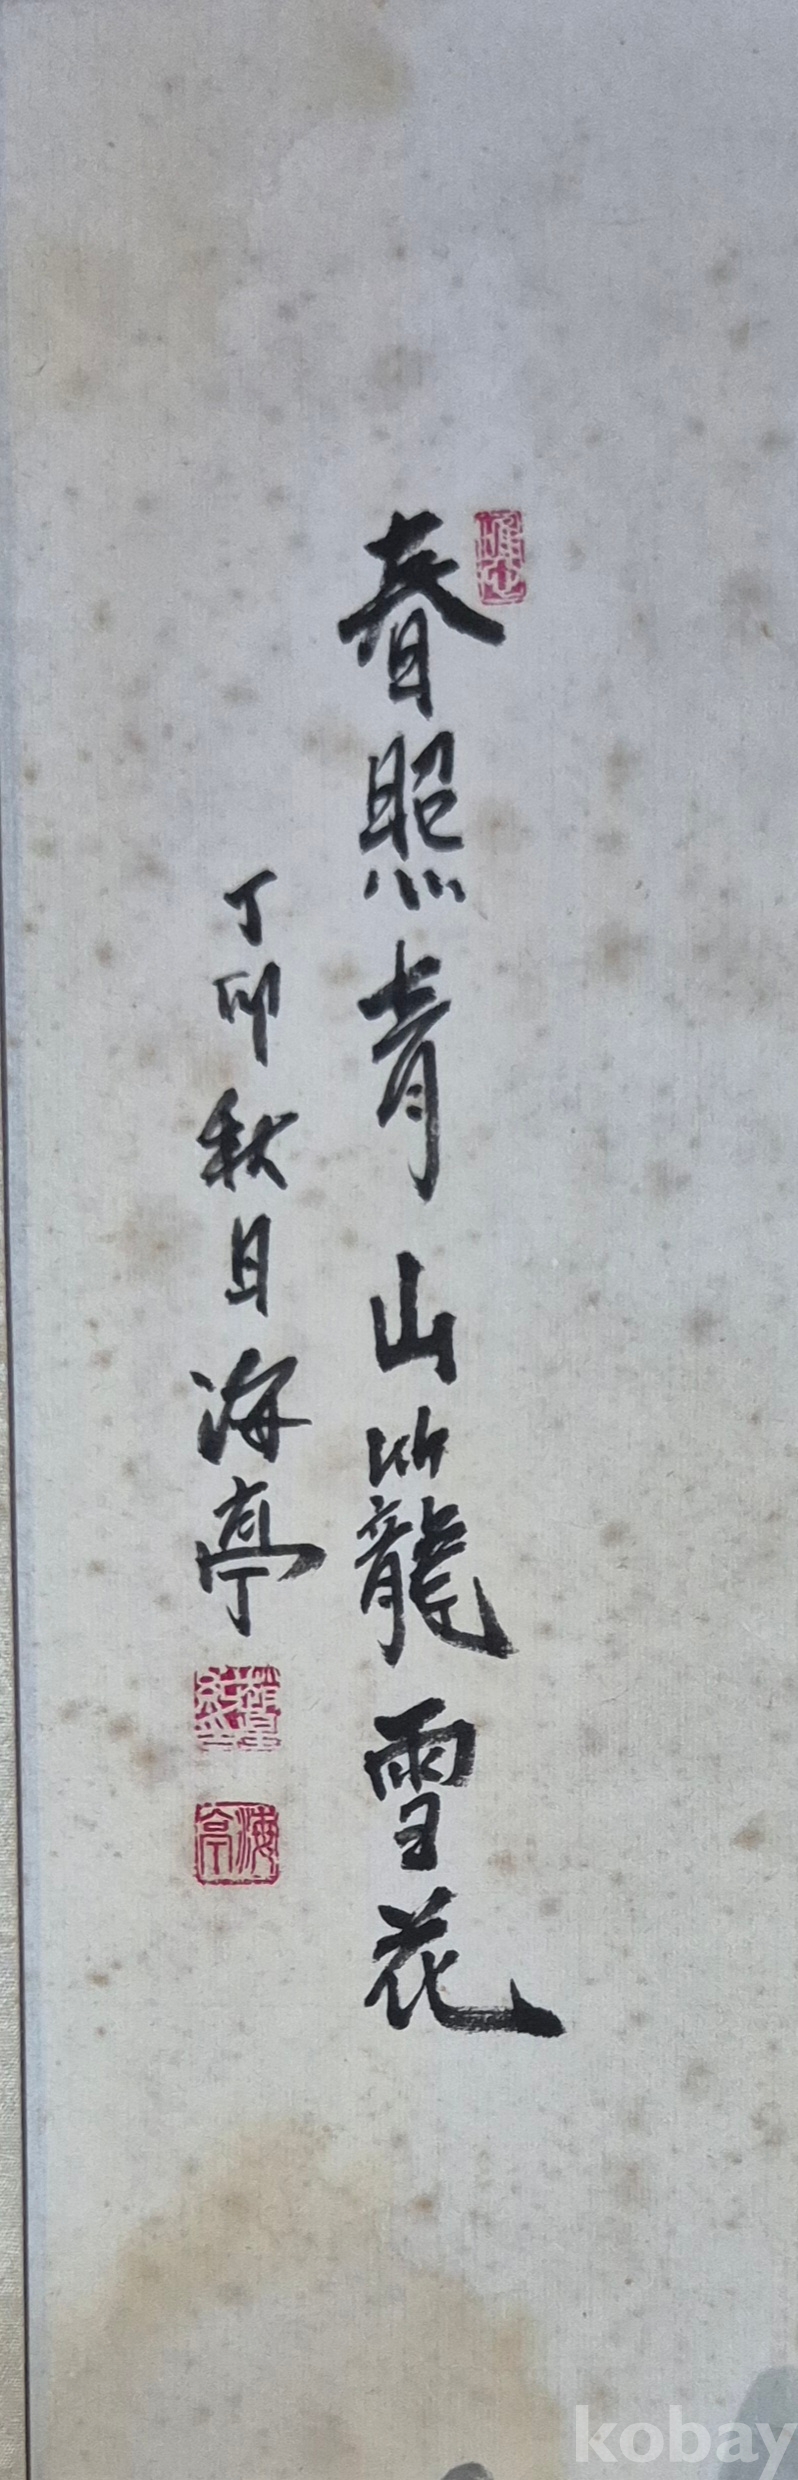 春照青山籠雪花
丁卯秋日海亭
海亭
kobay